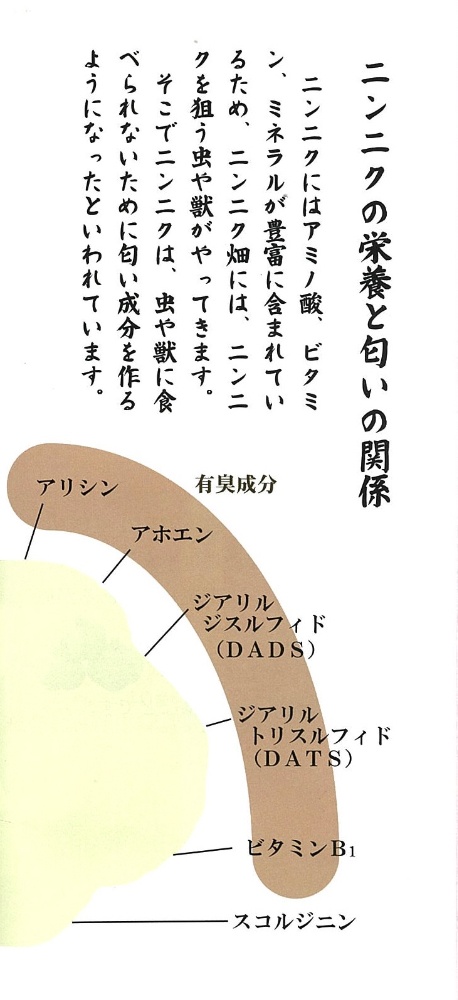 ニンニクの栄養と匂いの関係
ニンニクにはアミノ酸、ビタミ
ン、ミネラルが豊富に含まれてい
るため、ニンニク畑には、ニンニ
クを狙う虫や獣がやってきます。
そこでニンニクは、虫や獣に食
べられないために匂い成分を作る
ようになったといわれています。
有臭成分
アリシン
アホエン
ジアリル
ジスルフィド
（DADS）
ジアリル
トリスルフィド
（DATS）
ビタミンB1
スコルジニン